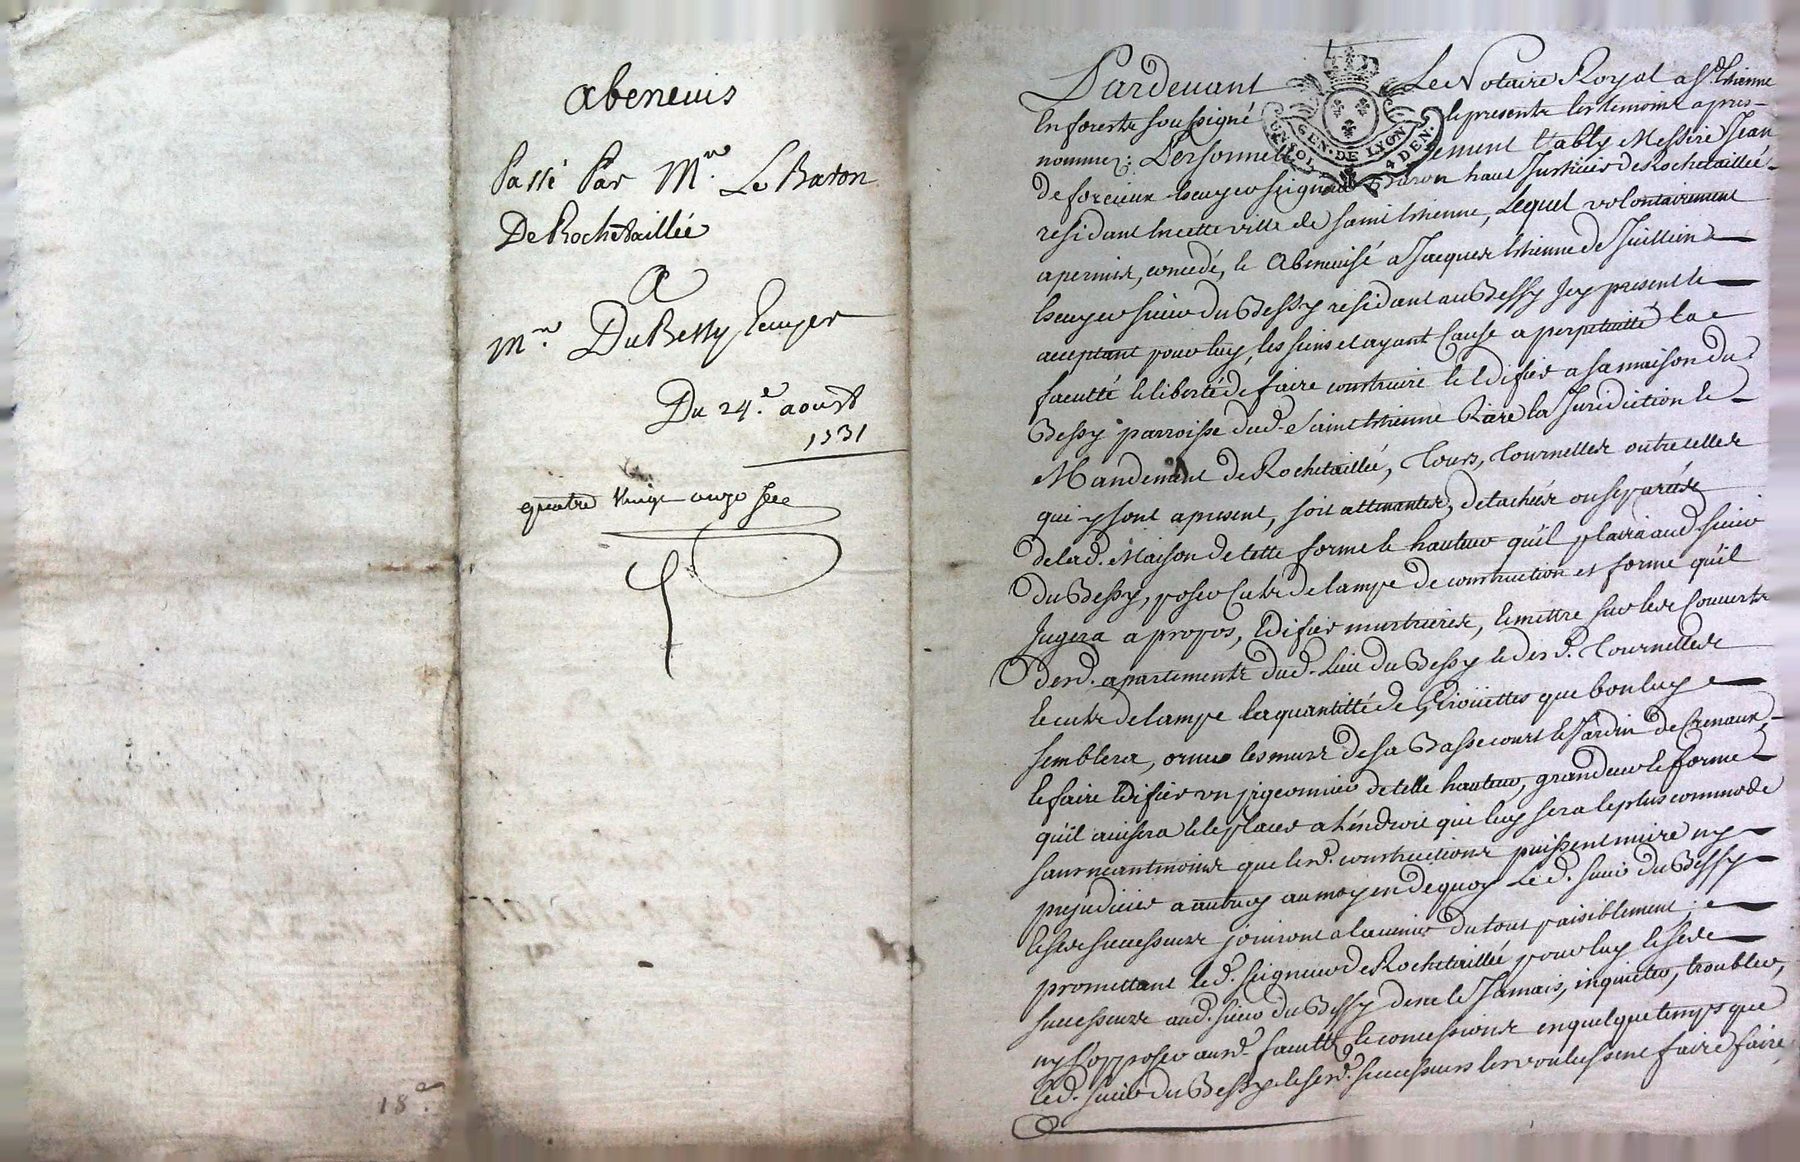 abenevis
Passé Par Mr. Le Baron
De Rochetaillée
a
Mr. Du Bessy Ecuyer
Du 24e. aoust
1731
quatre vingt onze
18e.
Pardevant Le Notaire Royal a St. Etienne
En forests soussigné & présents les temoins apres
nommez: Personnellement Estably Messire Jean
de forcieux Escuyer seigneur Baron haut Justicier de Rochetaillée
residant En cette ville de Saint Etienne, Lequel volontairement
a permis, concedé, & Abenevisé a Jacques Etienne de Juillien
Escuyer sieur du Bessy residant au Bessy Icy present &
acceptant pour luy, les siens et ayant Cause a perpetuitté La
facutté & liberté de faire construire & Edifier a sa maison du
Bessy parroisse dud. Saint Etienne Riere la Juridiction &
Mandement de Rochetaillée, Tours, Tournelles outre celles
qui y sont a present, soit attenantes, detachées ou separées
de lad. Maison de telle forme & hauteur qu'il plaira aud sieur
du Bessy, poser Culs de lampe de construction et forme qu'il
Jugera a propos, Edifier murtrieres, & mettre sur les Couverts
desd. apartements dud. Lieu du Bessy & desd. Tournelles
& culs de lampe la quantitté de Giroüettes que bon luy
semblera, orner les murs de sa Basse court & Jardin de Crenaux,
& faire Edifier un pigeonnier de telle hauteur, grandeur & forme
qu'il avisera & le placer a l'éndroit que luy sera le plus commode
sans neantmoins que lesd. constructions puissent nuire ny
prejudicier a autruy au moyen de quoy Led. sieur du Bessy
& ses successeurs joüiront a l'avenir du tout paisiblement;
promettant led. seigneur de Rochetaillée pour luy & ses
successeurs aud. sieur du Bessy de ne le Jamais, inquietter, troubler,
ny s'opposer ausd. facultés & concessions en quelque temps que
led. sieur du Bessy & sesd. successeurs les voulussent faire faire,